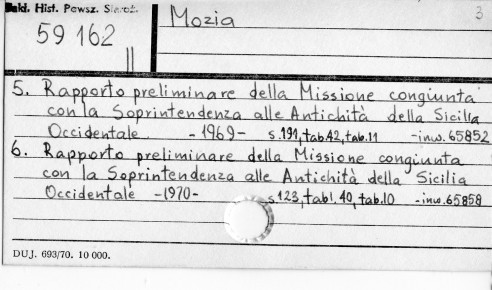 Zakł. Hist. Powsz. Staroż.
59 162
Mozia
3
5. Rapporto preliminare della Missione congiunta
con la Soprintendenza alle Antichità della Sicilia
Occidentale - 1969 - s.191, tab 42, tab.11 - inw. 65852
6. Rapporto preliminare della Missione congiunta
con la Soprintendenza alle Antichità della Sicilia
Occidentale - 1970 - s.123, tabl. 40, tab.10 - inw. 65858
DUJ. 693/70. 10 000.